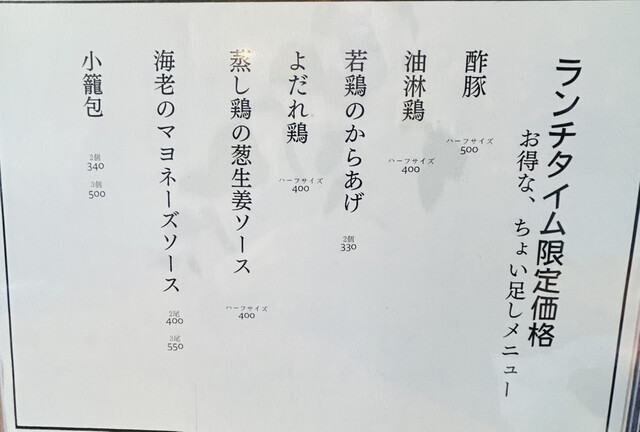 ランチタイム限定価格
お得な、ちょい足しメニュー
酢豚
ハーフサイズ
500
油淋鶏
ハーフサイズ
400
若鶏のからあげ
2個
330
よだれ鶏
ハーフサイズ
400
蒸し鶏の葱生姜ソース
ハーフサイズ
400
海老のマヨネーズソース
2尾
400
3尾
550
小籠包
2個
340
3個
500